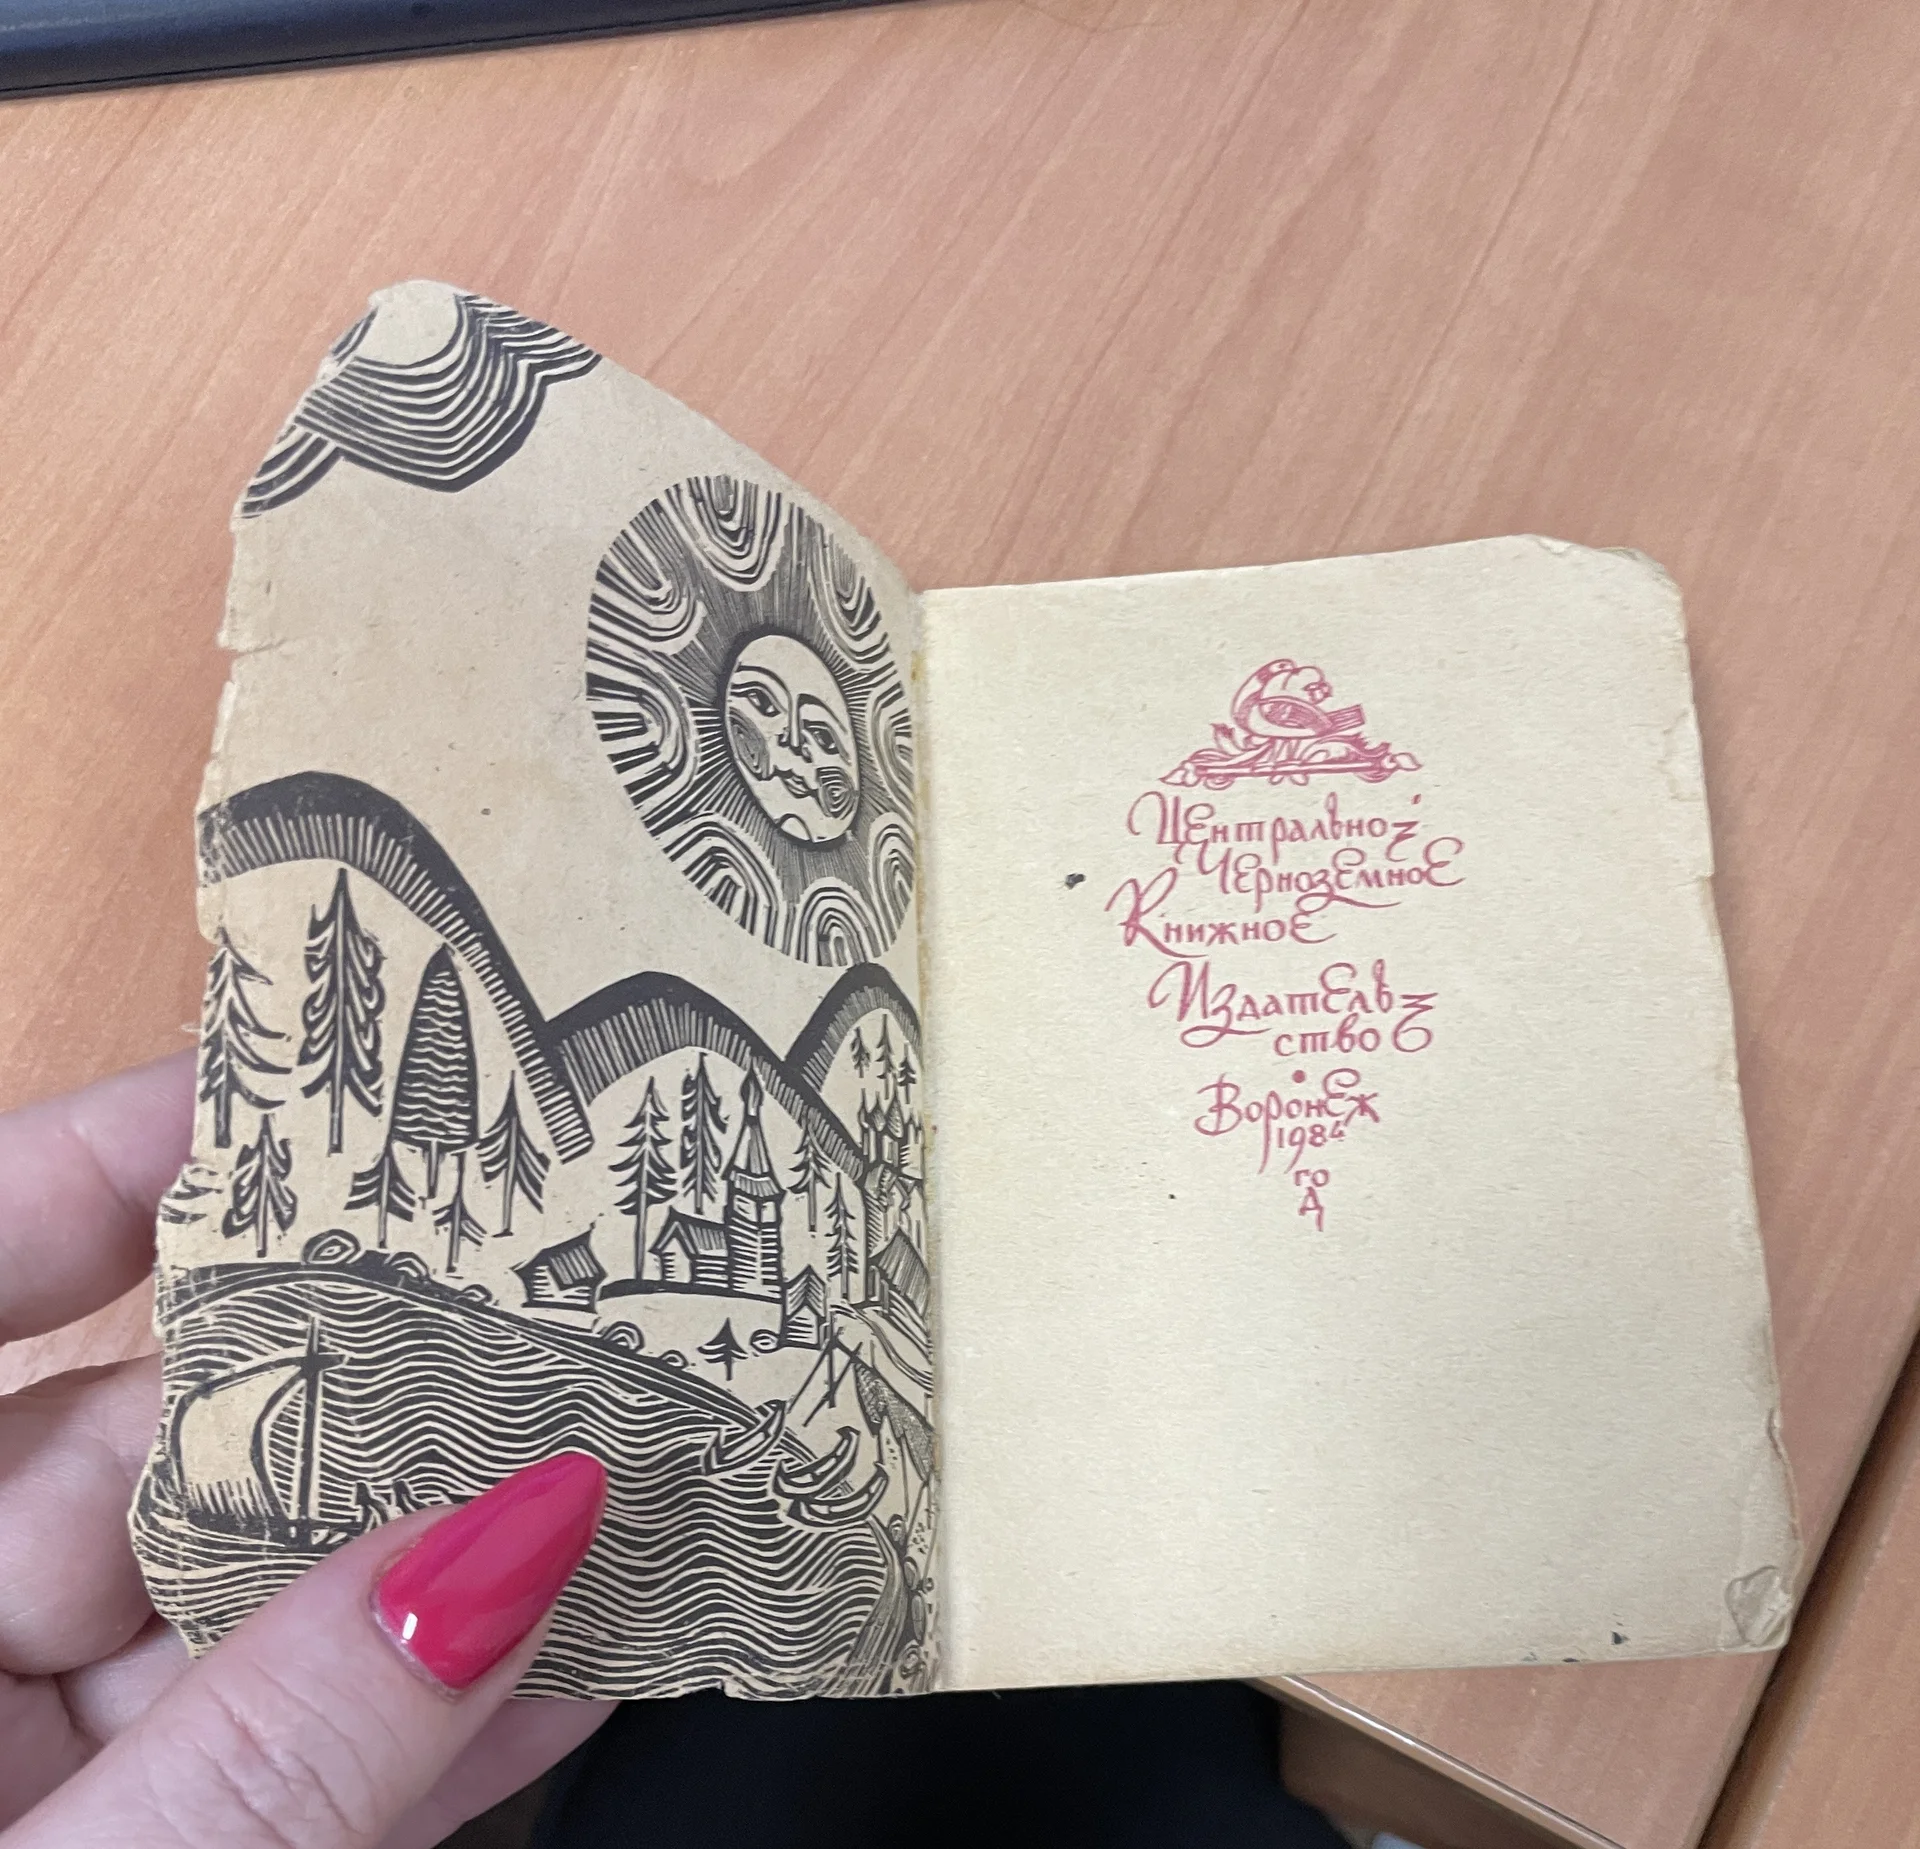 Центрально-
Черноземное
Книжное
Издатель-
ство
Воронеж
1984
го
д